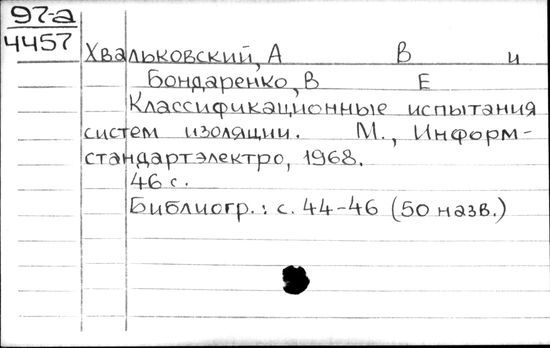 97-а
4457
Хвальковский, А В и
Бондаренко, В Е
Классификационные испытания
систем изоляции. М., Информ-
стандартэлектро, 1968.
46 с.
Библиогр.: с. 44-46 (50 назв.)